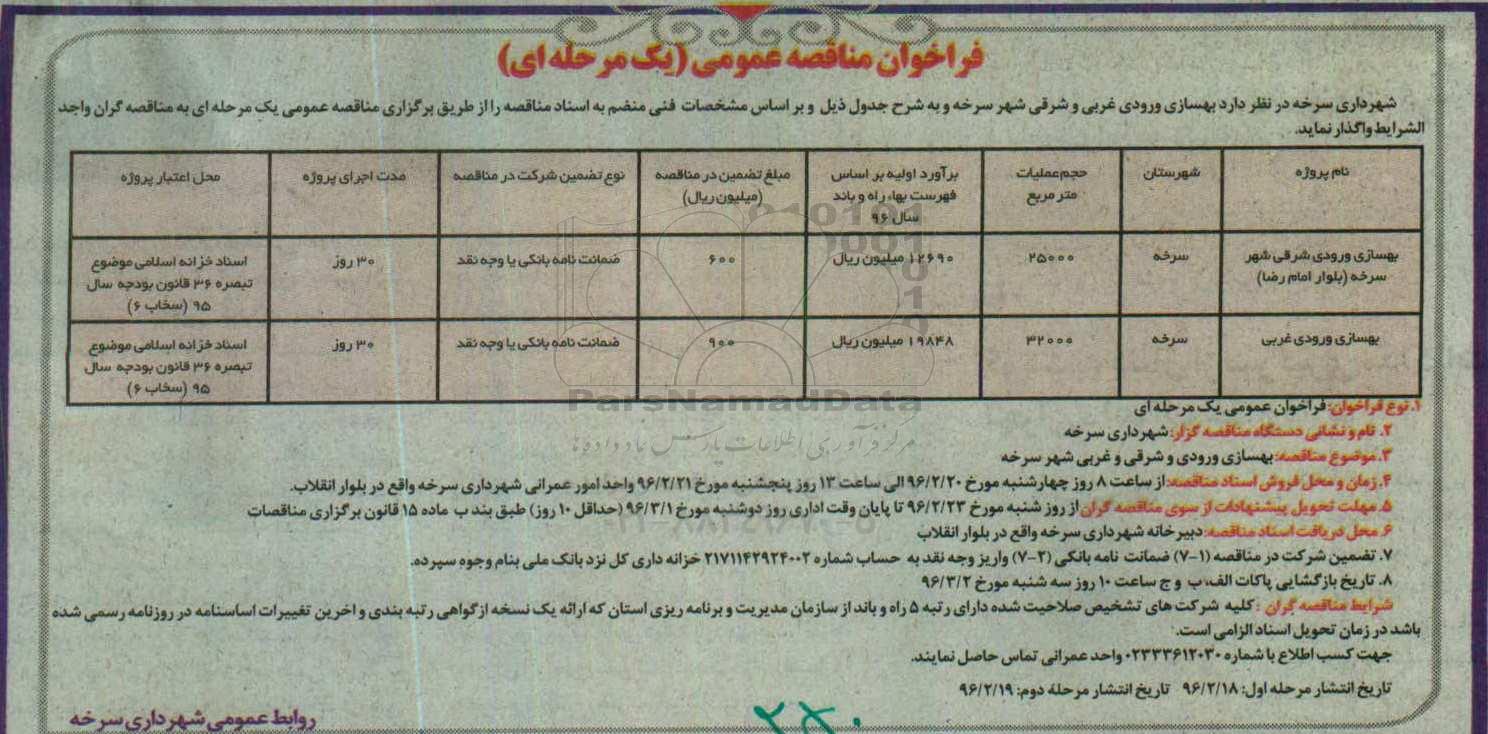 فراخوان مناقصه عمومی (یک مرحله ای)
شهرداری سرخه در نظر دارد بهسازی ورودی غربی و شرقی شهر سرخه و به شرح جدول ذیل و بر اساس مشخصات فنی منضم به اسناد مناقصه را از طریق برگزاری مناقصه عمومی یک مرحله ای به مناقصه گران واجد
الشرایط واگذار نماید.
نام پروژه | شهرستان | حجم عملیات متر مربع | برآورد اولیه بر اساس فهرست بهاء راه و باند سال ۹۶ | مبلغ تضمین در مناقصه (میلیون ریال) | نوع تضمین شرکت در مناقصه | مدت اجرای پروژه | محل اعتبار پروژه
بهسازی ورودی شرقی شهر سرخه (بلوار امام رضا) | سرخه | ۲۵۰۰۰ | ۱۲۶۹۰ میلیون ریال | ۶۰۰ | ضمانت نامه بانکی یا وجه نقد | ۳۰ روز | اسناد خزانه اسلامی موضوع تبصره ۳۶ قانون بودجه سال ۹۵ (سخاب ۶)
بهسازی ورودی غربی | سرخه | ۳۲۰۰۰ | ۱۹۸۴۸ میلیون ریال | ۹۰۰ | ضمانت نامه بانکی یا وجه نقد | ۳۰ روز | اسناد خزانه اسلامی موضوع تبصره ۳۶ قانون بودجه سال ۹۵ (سخاب ۶)
ParsNamadData
۱. نوع فراخوان: فراخوان عمومی یک مرحله ای
۲. نام و نشانی دستگاه مناقصه گزار: شهرداری سرخه
۳. موضوع مناقصه: بهسازی ورودی و شرقی و غربی شهر سرخه
۴. زمان و محل فروش اسناد مناقصه: از ساعت ۸ روز چهارشنبه مورخ ۹۶/۲/۲۰ الی ساعت ۱۳ روز پنجشنبه مورخ ۹۶/۲/۲۱ واحد امور عمرانی شهرداری سرخه واقع در بلوار انقلاب.
۵. مهلت تحویل پیشنهادات از سوی مناقصه گران از روز شنبه مورخ ۹۶/۲/۲۳ تا پایان وقت اداری روز دوشنبه مورخ ۹۶/۳/۱ (حداقل ۱۰ روز) طبق بند ب ماده ۱۵ قانون برگزاری مناقصات
۶. محل دریافت اسناد مناقصه: دبیر خانه شهرداری سرخه واقع در بلوار انقلاب
۷. تضمین شرکت در مناقصه (۱-۷) ضمانت نامه بانکی (۲-۷) واریز وجه نقد به حساب شماره ۲۱۷۱۱۴۲۹۲۴۰۰۲ خزانه داری کل نزد بانک ملی بنام وجوه سپرده.
۸. تاریخ بازگشایی پاکات الف، ب و ج ساعت ۱۰ روز سه شنبه مورخ ۹۶/۳/۲
شرایط مناقصه گران : کلیه شرکت های تشخیص صلاحیت شده دارای رتبه ۵ راه و باند از سازمان مدیریت و برنامه ریزی استان که ارائه یک نسخه از گواهی رتبه بندی و اخرین تغییرات اساسنامه در روزنامه رسمی شده
باشد در زمان تحویل اسناد الزامی است.
جهت کسب اطلاع با شماره ۰۲۳۳۳۶۱۲۰۳۰ واحد عمرانی تماس حاصل نمایند.
تاریخ انتشار مرحله اول: ۹۶/۲/۱۸ تاریخ انتشار مرحله دوم: ۹۶/۲/۱۹
روابط عمومی شهرداری سرخه